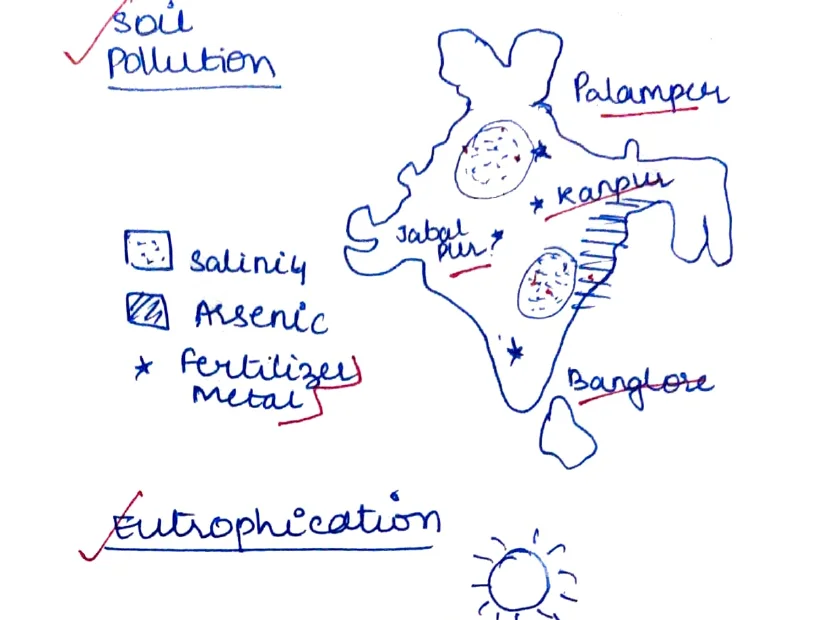 Soil
Pollution
Palampur
Kanpur
Jabal
pur
Salinity
Arsenic
Fertilizer
Metal
Banglore
Eutrophication